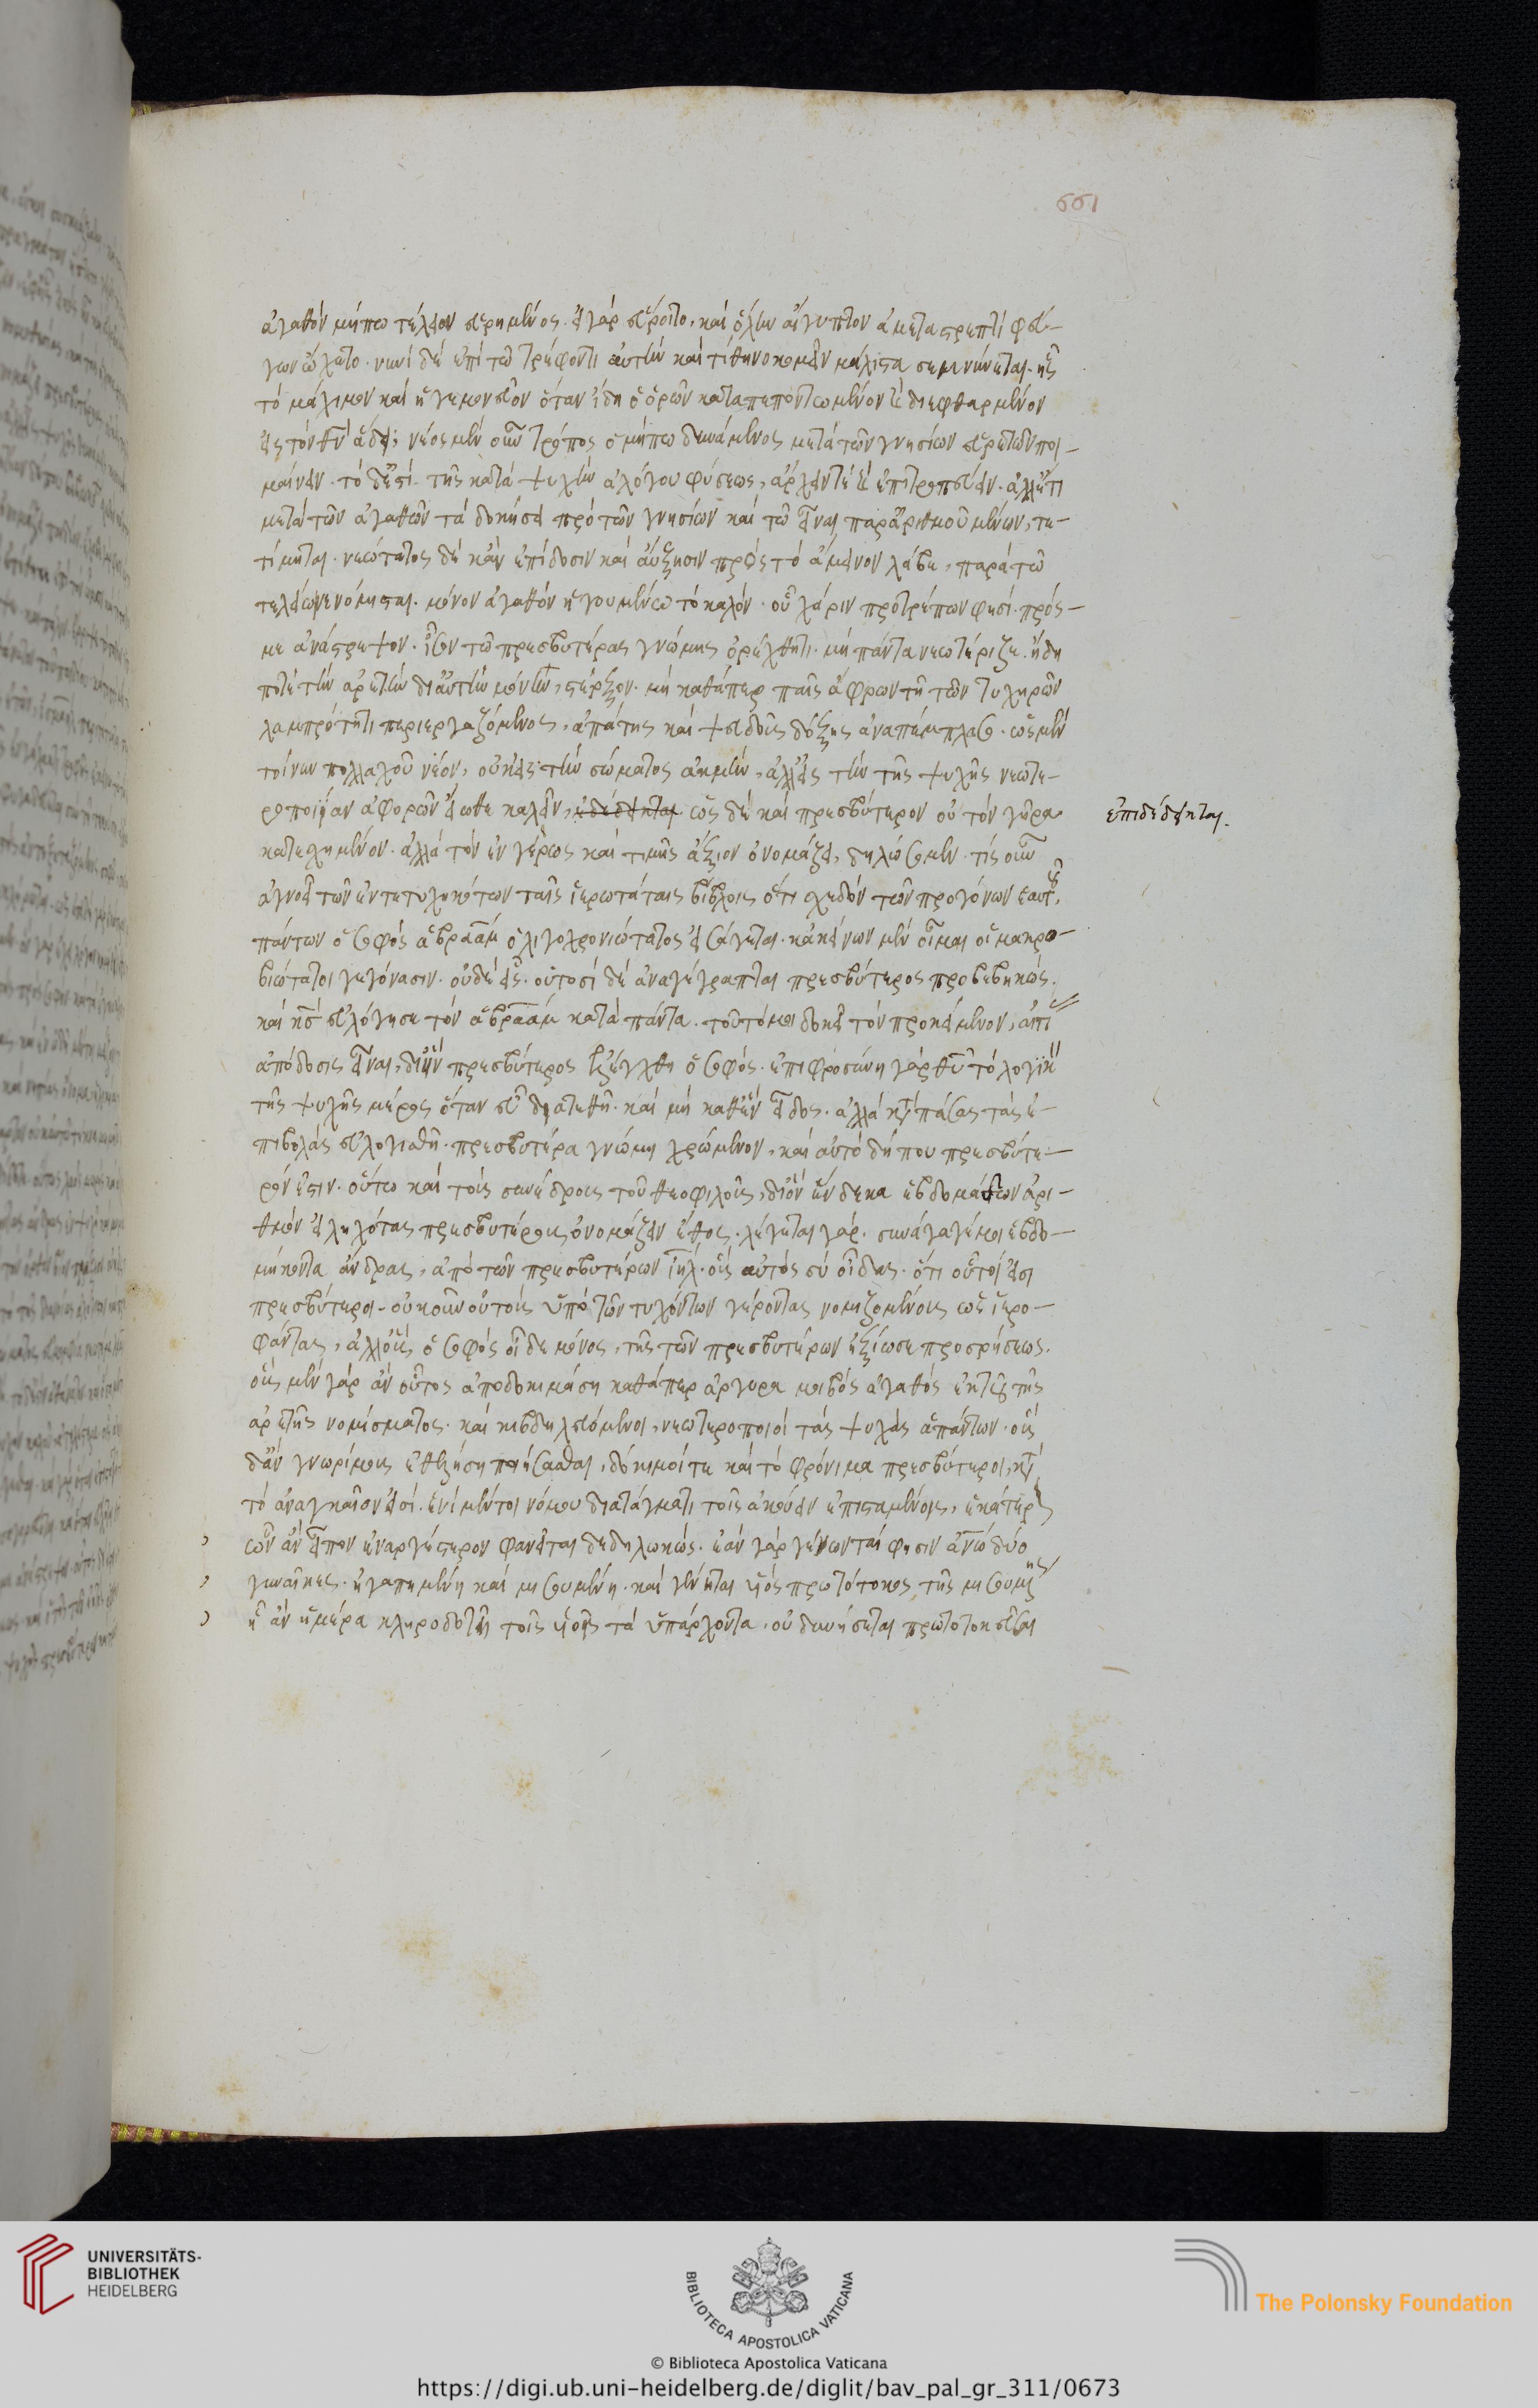 ἀγαθόν μήπω τέλειον εὑρημένος. εἰ γάρ εὕροιτο, καί ὅλην αἴγυπτον ἀμεταστρεπτί φεύ-
γων ὤχετο. νυνί δέ ἐπί τῶ τρέφοντι αὐτήν καί τιθηνοκομεῖν μάλιστα σεμνύνεται. ἧς
τό μάχιμον καί ἡγεμονεῦον ὅταν ἴδη ὁ ὁρῶν καταπεποντωμένον καί διεφθαρμένον
εἰς τόν θν ἄδει, νέος μέν οὖν τρόπος ὁ μήπω δυνάμενος μετά τῶν γνησίων εὑρετῶν ποι-
μαίνειν. τό δ' ἐστί. τῆς κατά ψυχήν ἀλόγου φύσεως, ἄρχειν τέ καί ἐπιτροπεύειν. ἀλλ' ἔτι
μετά τῶν ἀγαθῶν τά δοκήσει πρό τῶν γνησίων καί τῶ εἶναι παραριθμουμένων, τε-
τίμηται. νεώτατος δέ κἄν ἐπίδοσιν καί αὔξησιν πρός τό ἄμεινον λάβη, παρά τῶ
τελείω νενόμισται. μόνον ἀγαθόν ἡγουμένω τό καλόν. οὗ χάριν προτρέπων φησί. πρός-
με ἀνάστρεψον. ἴσον τῶ πρεσβυτέρας γνώμης ὀρέχθητι. μή πάντα νεωτέριζε. ἤδη
ποτέ τήν ἀρετήν δι' αὐτήν μόνην, στέρξον. μή καθάπερ παῖς ἄφρων τῆ τῶν τυχηρῶν
λαμπρότητι περιεργαζόμενος, ἀπάτης καί ψευδοῦς δόξης ἀναπίμπλασο. ὡς μέν
τοίνυν πολλαχοῦ νέον, οὐκ εἰς τήν σώματος ἀκμήν, ἀλλ' εἰς τήν τῆς ψυχῆς νεωτε-
ροποιΐαν ἀφορῶν εἴωθε καλεῖν, ὡς δέ καί πρεσβύτερον οὐ τόν γήρα ἐπιδέδεικται.
κατεσχημένον. ἀλλά τόν ἐν γέρως καί τιμῆς ἄξιον ὀνομάζει, δηλώσομεν. τίς οὖν
ἀγνοεῖ τῶν ἐντετυχηκότων ταῖς ἱερωτάταις βίβλοις ὅτι σχεδόν τῶν προγόνων ἑαυτοῦ
πάντων ὁ σοφός ἀβραάμ ὀλιγοχρονιώτατος εἰσάγεται. κἀκείνων μέν οἶμαι οἱ μακρο-
βιώτατοι γεγόνασιν. οὐδέ εἷς. οὑτοσί δέ ἀναγέγραπται πρεσβύτερος προβεβηκώς.
καί κς εὐλόγησε τόν ἀβραάμ κατά πάντα. τοῦτό μοι δοκεῖ τόν προκείμενον,
ἀπόδοσις εἶναι, δι' ἥν πρεσβύτερος ἐλέχθη ὁ σοφός. ἐπιφροσύνη γάρ θυ τό λογικόν
τῆς ψυχῆς μέρος ὅταν εὖ διατεθῆ. καί μή καθ' ἕν εἶδος. ἀλλά κατά πάσας τάς ἐ-
πιβολάς εὐλογισθῆ. πρεσβυτέρα γνώμη χρώμενον, καί αὐτό δή που πρεσβύτε-
ρόν ἐστιν. οὕτω καί τούς συνέδρους τοῦ θεοφιλοῦς, δι' ὅν ἕνδεκα ἑβδομάδων ἀρι-
θμόν εἰληχότας πρεσβυτέρους ὀνομάζειν ἔθος. λέγεται γάρ. συνάγαγέ μοι ἑβδο-
μήκοντα ἄνδρας, ἀπό τῶν πρεσβυτέρων ιηλ. οὕς αὐτός σύ οἶδας. ὅτι οὗτοί εἰσι
πρεσβύτεροι. οὐκοῦν οὐ τούς ὑπό τῶν τυχόντων γέροντας νομιζομένους ὡς ἱερο-
φάντας, ἀλλ' οὕς ὁ σοφός οἶδε μόνος, τῆς τῶν πρεσβυτέρων ἠξίωσε προσρήσεως.
οὕς μέν γάρ ἄν οὗτος ἀποδοκιμάση καθάπερ ἀργυραμοιβός ἀγαθός ἐκ τοῦ τῆς
ἀρετῆς νομίσματος. καί κιβδηλευόμενοι, νεωτεροποιοί τάς ψυχάς ἁπάντων. οὕς
δ' ἄν γνωρίμους ἐθελήση ποιήσασθαι, δόκιμοί τε καί τό φρόνιμα πρεσβύτεροι, κατά
τό ἀναγκαῖον εἰσί. ἑνί μέντοι νόμου διατάγματι τοῖς ἀκούειν ἐπισταμένοις, ἑκάτερον
ὧν ἄν εἶπον ἐναργέστερον φανεῖται δεδηλωκώς. ἐάν γάρ γένωνταί φησιν ἀνω δύο
γυναῖκες. ἠγαπημένη καί μισουμένη. καί γένηται υἱός πρωτότοκος τῆς μισουμένης
ἧ ἄν ἡμέρα κληροδοτῆ τοῖς υἱοῖς τά ὑπάρχοντα, οὐ δυνήσεται πρωτοτοκεῦσαι
UNIVERSITÄTS-
BIBLIOTHEK
HEIDELBERG
BIBLIOTECA APOSTOLICA VATICANA
The Polonsky Foundation
© Biblioteca Apostolica Vaticana
https://digi.ub.uni-heidelberg.de/diglit/bav_pal_gr_311/0673